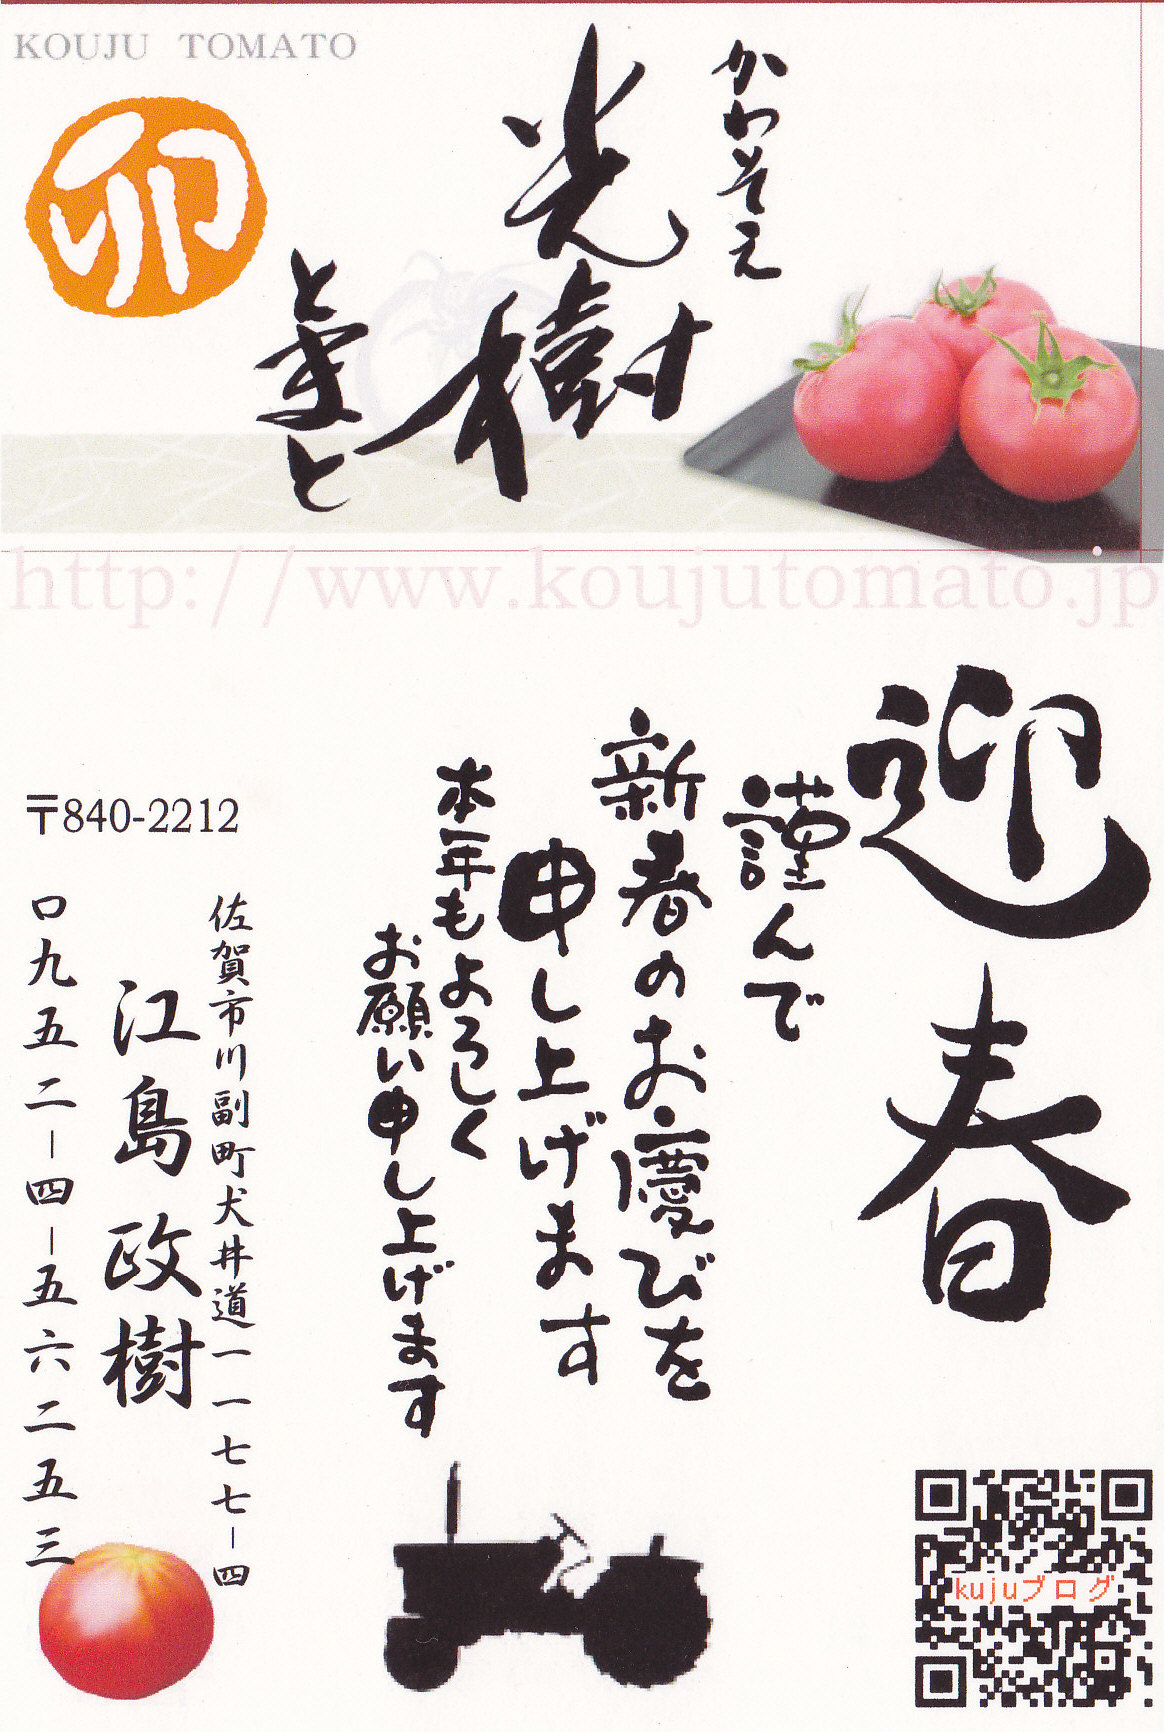 KOUJU TOMATO
卯
かわそえ
光樹
とまと
http://www.koujutomato.jp
迎春
謹んで
新春のお慶びを
申し上げます
本年もよろしく
お願い申し上げます
〒840-2212
佐賀市川副町犬井道一一七七－四
江島政樹
〇九五二－四－五六二五三
kujuブログ